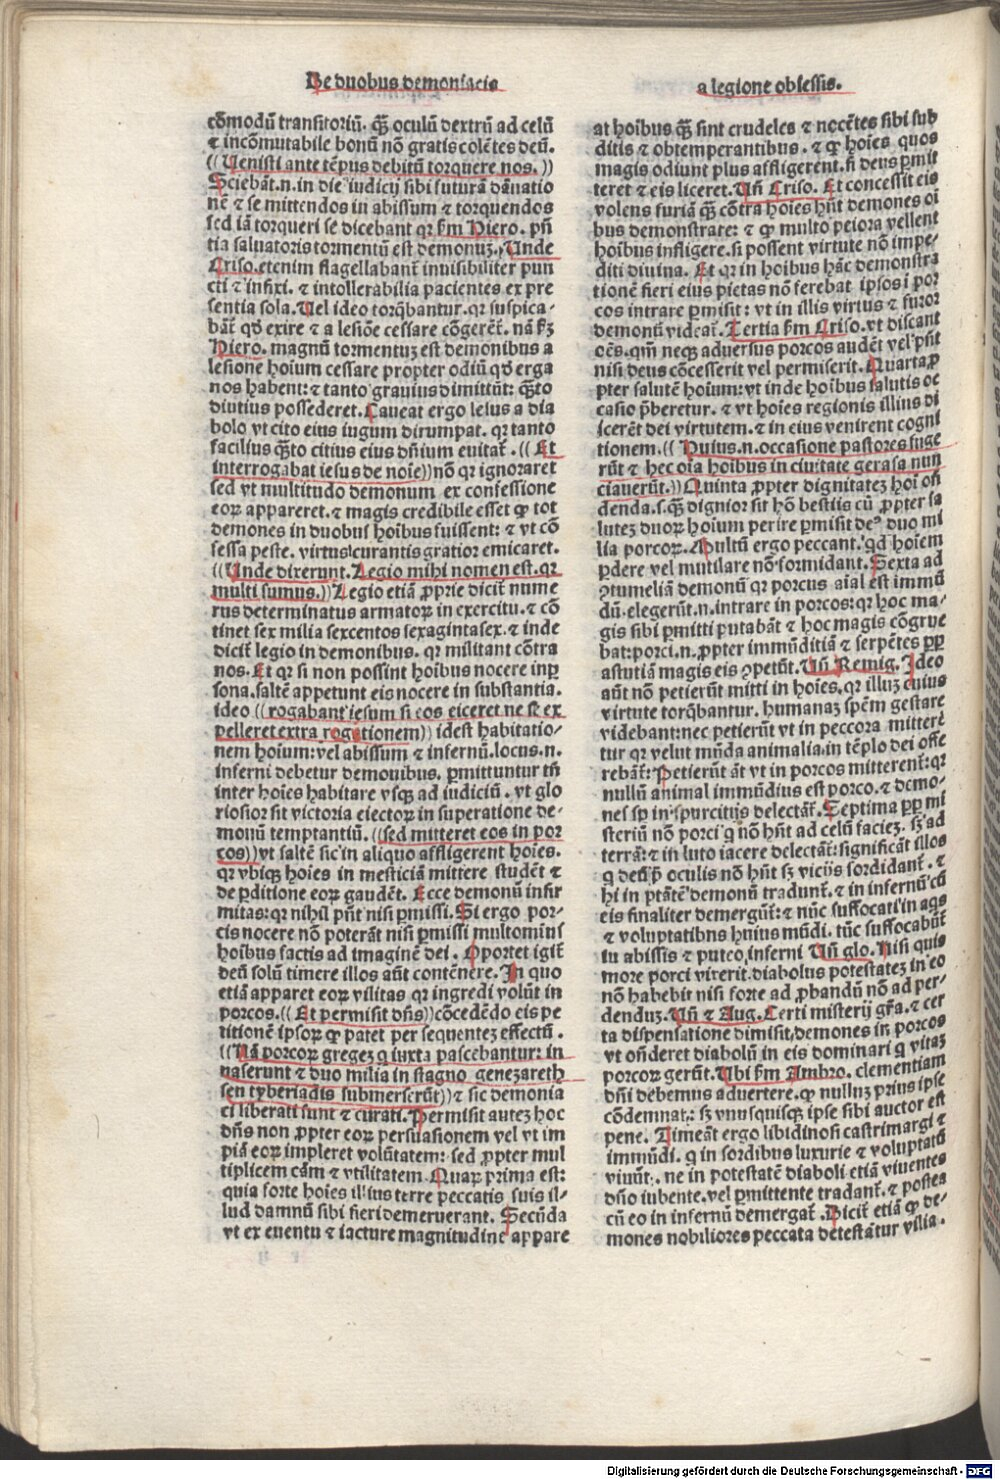 De duobus demoniacis
a legione obsessis.
cōmodū transitoriū. q̄ȝ oculū dextrū ad celū
⁊ incōmutabile bonū nō gratis colētes deū.
((Uenisti ante tēpus debitū torquere nos.))
Sciebāt.n.in die iudicij sibi futurā dānatio
nē ⁊ se mittendos in abissum ⁊ torquendos
sed iā torqueri se dicebant qꝛ ẜm Hiero. pn̄
tia saluatoris tormentū est demonuȝ. Unde
Criso.etenim flagellabant̄ inuisibiliter pun
cti ⁊ infixi. ⁊ intollerabilia pacientes ex pre
sentia sola. Uel ideo torq̄bantur.qꝛ suspica-
bāt̄ qd̄ exire ⁊ a lesiōe cessare cōgerēt̄. nā ẜȝ
Hiero. magnū tormentuȝ est demonibus a
lesione hoium cessare propter odiū qd̄ erga
nos habent:⁊ tanto grauius dimittūt: q̄ȝto
diutius possederet. Caueat ergo lesus a dia
bolo vt cito eius iugum dirumpat. qꝛ tanto
facilius q̄ȝto citius eius dn̄ium euitat̄.((Et
interrogabat iesus de noīe))nō qꝛ ignoraret
sed vt multitudo demonum ex confessione
eoꝝ appareret.⁊ magis credibile esset ꝙ tot
demones in duobus hoībus fuissent: ⁊ vt cō
fessa peste. virtus curantis gratioꝛ emicaret.
((Unde dixerunt.Legio mihi nomen est.qꝛ
multi sumus.))Legio etiā ꝓprie dicit̄ nume
rus determinatus armatoꝝ in exercitu.⁊ cō
tinet sex milia sexcentos sexagintasex.⁊ inde
dicit̄ legio in demonibus. qꝛ militant cōtra
nos.Et qꝛ si non possint hoībus nocere in ꝑ
sona.saltē appetunt eis nocere in substantia.
ideo ((rogabant iesum si eos eiceret ne si ex
pelleret extra rogationem)) idest habitatio-
nem hoium:vel abissum ⁊ infernū.locus.n.
inferni debetur demonibus. ꝑmittuntur tn̄
inter hoīes habitare vsqȝ ad iudiciū. vt glo
riosior sit victoria eiectoꝝ in superatione de-
monū temptantiū.((sed mitteret eos in por
cos))vt saltē sic in aliquo affligerent hoīes.
qꝛ vbiqȝ hoīes in mesticiā mittere studēt ⁊
de ꝑditione eoꝝ gaudēt. Ecce demonū infir
mitas:qꝛ nihil pn̄t nisi ꝑmissi.Si ergo por-
cis nocere nō poterāt nisi ꝑmissi multominꝰ
hoībus factis ad imaginē dei. Oportet igit̄
deū solū timere illos aūt contēnere.In quo
etiā apparet eoꝝ vilitas qꝛ ingredi volūt in
porcos.((Et permisit dn̄s))cōcedēdo eis pe
titionē ipsoꝝ ꝙ patet per sequenteȝ effectū.
((Nā porcoꝝ gregeȝ q iuxta pascebantur: in
uaserunt ⁊ duo milia in stagno genezareth
seu tyberiadis submerserūt))⁊ sic demonia
ci liberati sunt ⁊ curati.Permisit auteȝ hoc
dn̄s non ꝓpter eoꝝ persuasionem vel vt im
piā eoꝝ impleret volūtatem: sed ꝓpter mul
tiplicem cām ⁊ vtilitatem. Quaꝝ prima est:
quia forte hoīes illius terre peccatis suis il-
lud damnū sibi fieri demeruerant. Secūda
vt ex euentu ⁊ iacture magnitudine appare
at hoībus q̄ȝ sint crudeles ⁊ nocētes sibi sub
ditis ⁊ obtemperantibus.⁊ ꝙ hoīes quos
magis odiunt plus affligerent.si deus ꝑmit
teret ⁊ eis liceret.Un̄ Criso. Et concessit eis
volens furiā q̄ȝ cōtra hoīes hn̄t demones oī
bus demonstrare: ⁊ ꝙ multo peiora vellent
hoībus infligere.si possent virtute nō impe-
diti diuina. Et qꝛ in hoībus hāc demonstra
tionē fieri eius pietas nō ferebat ipsos ī por
cos intrare ꝑmisit: vt in illis virtus ⁊ furor
demonū videat̄.Tertia ẜm Criso.vt discant
oēs.qm̄ neqȝ aduersus porcos audēt vel pn̄t
nisi deus cōcesserit vel permiserit.Quarta ꝓ
pter salutē hoium:vt inde hoībus salutis oc
casio p̄beretur. ⁊ vt hoīes regionis illius di
scerēt dei virtutem.⁊ in eius venirent cogni
tionem.((Huius.n.occasione pastores fuge
rūt ⁊ hec oīa hoībus in ciuitate gerasa nun
ciauerūt.))Quinta ꝓpter dignitateȝ hoī osī
denda.s.q̄ȝ dignior sit hō bestiis cū ꝓpter sa
luteȝ duoꝝ hoium perire ꝑmisit deꝰ duo mi
lia porcoꝝ. Multū ergo peccant.qd hoīem
ꝑdere vel mutilare nō formidant. Sexta ad
ꝯtumeliā demonū qꝛ porcus aīal est immū
dū.elegerūt.n.intrare in porcos:qꝛ hoc ma-
gis sibi ꝑmitti putabāt ⁊ hoc magis cōgrue
bat:porci.n.ꝓpter immūditiā ⁊ serpētes ꝓꝑ
astutiam magis eis ꝯpetūt.Un̄ Remig.Ideo
aūt nō petierūt mitti in hoīes.qꝛ illuȝ cuius
virtute torq̄bantur. humanaȝ spēm gestare
videbant:nec petierūt vt in peccora mitterē
tur qꝛ velut mūda animalia.in tēplo dei offe
rebāt̄:Petierūt āt vt in porcos mitterent̄:qꝛ
nullū animal immūdius est porco.⁊ demo-
nes sp in spurcitijs delectāt̄.Septima ꝓꝑ mi
steriū nō porci q nō hn̄t ad celū facieȝ. sȝ ad
terrā:⁊ in luto iacere delectāt̄:significāt illos
q deū p̄ oculis nō hn̄t sȝ vicijs sordidant̄. ⁊
hi in ptātē demonū tradunt̄.⁊ in infernū cū
eis finaliter demergūt̄:⁊ nūc suffocati in aqs
⁊ voluptatibus huius mūdi. tūc suffocabūt̄
in abissis ⁊ puteo inferni Un̄ glo.Nisi quis
more porci vixerit.diabolus potestateȝ in eo
nō habebit nisi forte ad ꝓbandū nō ad per-
denduȝ.Un̄ ⁊ Aug.Certi misterij gr̄a.⁊ cer
ta dispensatione dimisit.demones in porcos
vt on̄deret diabolū in eis dominari q vitaȝ
porcoꝝ gerūt.Ubi ẜm Ambro. clementiam
dn̄i debemus aduertere.ꝙ nulluȝ prius ipse
cōdemnat: sȝ vnusquisqȝ ipse sibi auctor est
pene. Timeāt ergo libidinosi castrimargi ⁊
immūdi. q in sordibus luxurie ⁊ voluptatū
viuūt. ne in potestatē diaboli etiā viuentes
dn̄o iubente.vel ꝑmittente tradant̄.⁊ postea
cū eo in infernū demergāt̄.Dicit̄ etiā ꝙ de-
mones nobiliores peccata detestātur vilia.
Digitalisierung gefördert durch die Deutsche Forschungsgemeinschaft - DFG